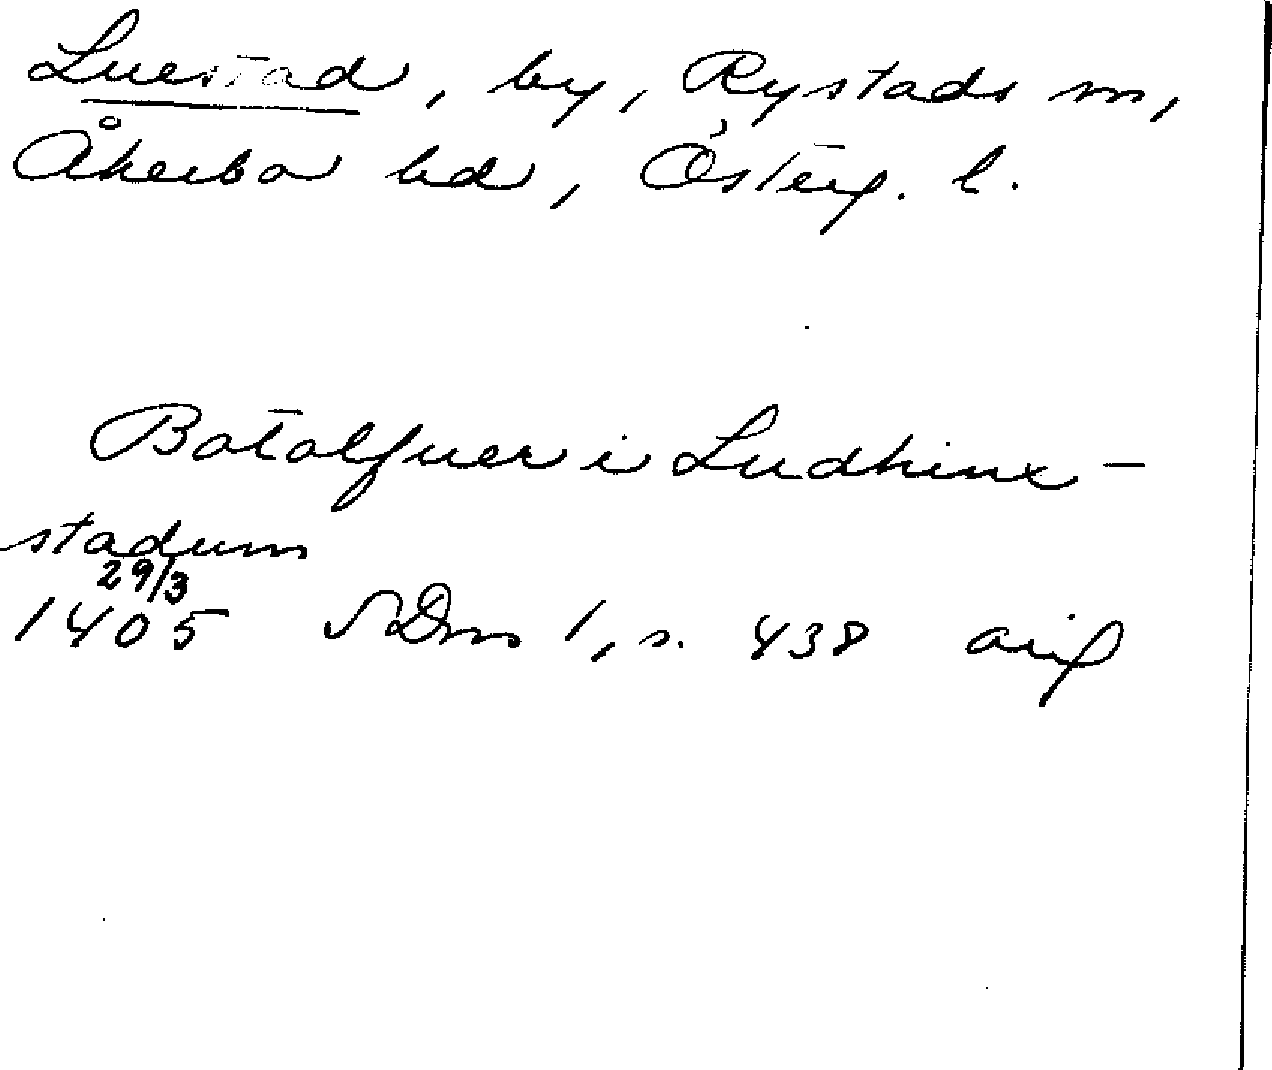 Luestad, by, Rystads sn,
Åkerbo hd, Österg. l.
Botolfuer i Ludhinx-
stadum
29/3
1405 SDns 1, s. 438 orig